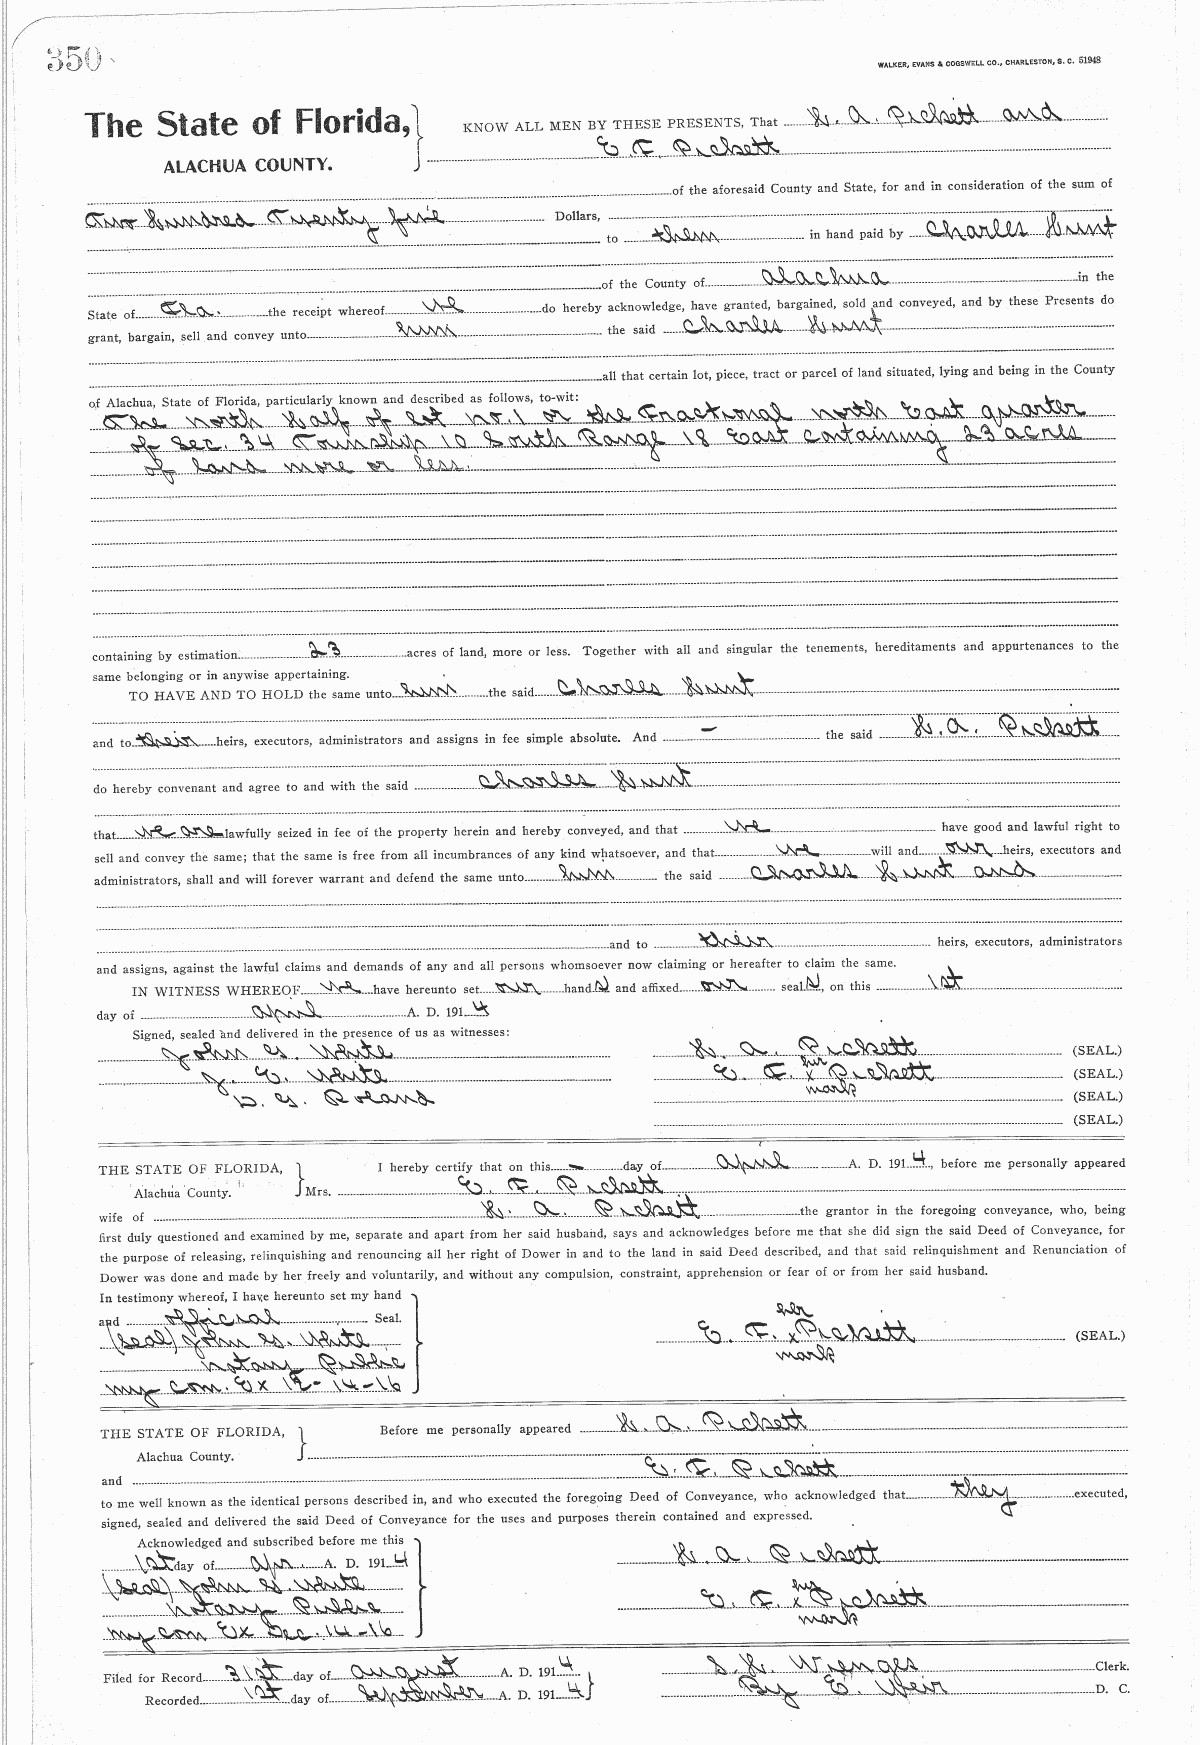 350
WALKER, EVANS & COGSWELL CO., CHARLESTON, S. C. 51948
The State of Florida,
ALACHUA COUNTY.
KNOW ALL MEN BY THESE PRESENTS, That H. A. Pickett and
E. F. Pickett
of the aforesaid County and State, for and in consideration of the sum of
Two Hundred Twenty five Dollars,
to them in hand paid by Charles Hunt
of the County of Alachua in the
State of Fla. the receipt whereof we do hereby acknowledge, have granted, bargained, sold and conveyed, and by these Presents do
grant, bargain, sell and convey unto him the said Charles Hunt
all that certain lot, piece, tract or parcel of land situated, lying and being in the County
of Alachua, State of Florida, particularly known and described as follows, to-wit:
The north Half of lot no. 1 or the Fractional north East quarter
of Sec. 34 Township 10 South Range 18 East containing 23 acres
of land more or less.
containing by estimation 23 acres of land, more or less. Together with all and singular the tenements, hereditaments and appurtenances to the
same belonging or in anywise appertaining.
TO HAVE AND TO HOLD the same unto him the said Charles Hunt
and to their heirs, executors, administrators and assigns in fee simple absolute. And – the said H. A. Pickett
do hereby convenant and agree to and with the said Charles Hunt
that we are lawfully seized in fee of the property herein and hereby conveyed, and that we have good and lawful right to
sell and convey the same; that the same is free from all incumbrances of any kind whatsoever, and that we will and our heirs, executors and
administrators, shall and will forever warrant and defend the same unto him the said Charles Hunt and
and to their heirs, executors, administrators
and assigns, against the lawful claims and demands of any and all persons whomsoever now claiming or hereafter to claim the same.
IN WITNESS WHEREOF we have hereunto set our hand s and affixed our seal s, on this 1st
day of April A. D. 1914
Signed, sealed and delivered in the presence of us as witnesses:
John G. White H. A. Pickett (SEAL.)
his
J. E. White E. F. x Pickett (SEAL.)
mark
D. G. Roland (SEAL.)
(SEAL.)
THE STATE OF FLORIDA,
Alachua County.
I hereby certify that on this – day of April A. D. 1914, before me personally appeared
Mrs. E. F. Pickett
wife of H. A. Pickett the grantor in the foregoing conveyance, who, being
first duly questioned and examined by me, separate and apart from her said husband, says and acknowledges before me that she did sign the said Deed of Conveyance, for
the purpose of releasing, relinquishing and renouncing all her right of Dower in and to the land in said Deed described, and that said relinquishment and Renunciation of
Dower was done and made by her freely and voluntarily, and without any compulsion, constraint, apprehension or fear of or from her said husband.
In testimony whereof, I have hereunto set my hand
and official Seal.
(Seal) John G. White
notary Public
my com. Ex 12-14-16
her
E. F. x Pickett (SEAL.)
mark
THE STATE OF FLORIDA,
Alachua County.
Before me personally appeared H. A. Pickett
and E. F. Pickett
to me well known as the identical persons described in, and who executed the foregoing Deed of Conveyance, who acknowledged that they executed,
signed, sealed and delivered the said Deed of Conveyance for the uses and purposes therein contained and expressed.
Acknowledged and subscribed before me this
1st day of Apr. A. D. 1914
(Seal) John G. White
notary Public
my com Ex Dec. 14-16
H. A. Pickett
E. F. x Pickett
mark
Filed for Record 31st day of August A. D. 1914
Recorded 1st day of September A. D. 1914
S. H. Wienges Clerk.
By E. Weir D. C.